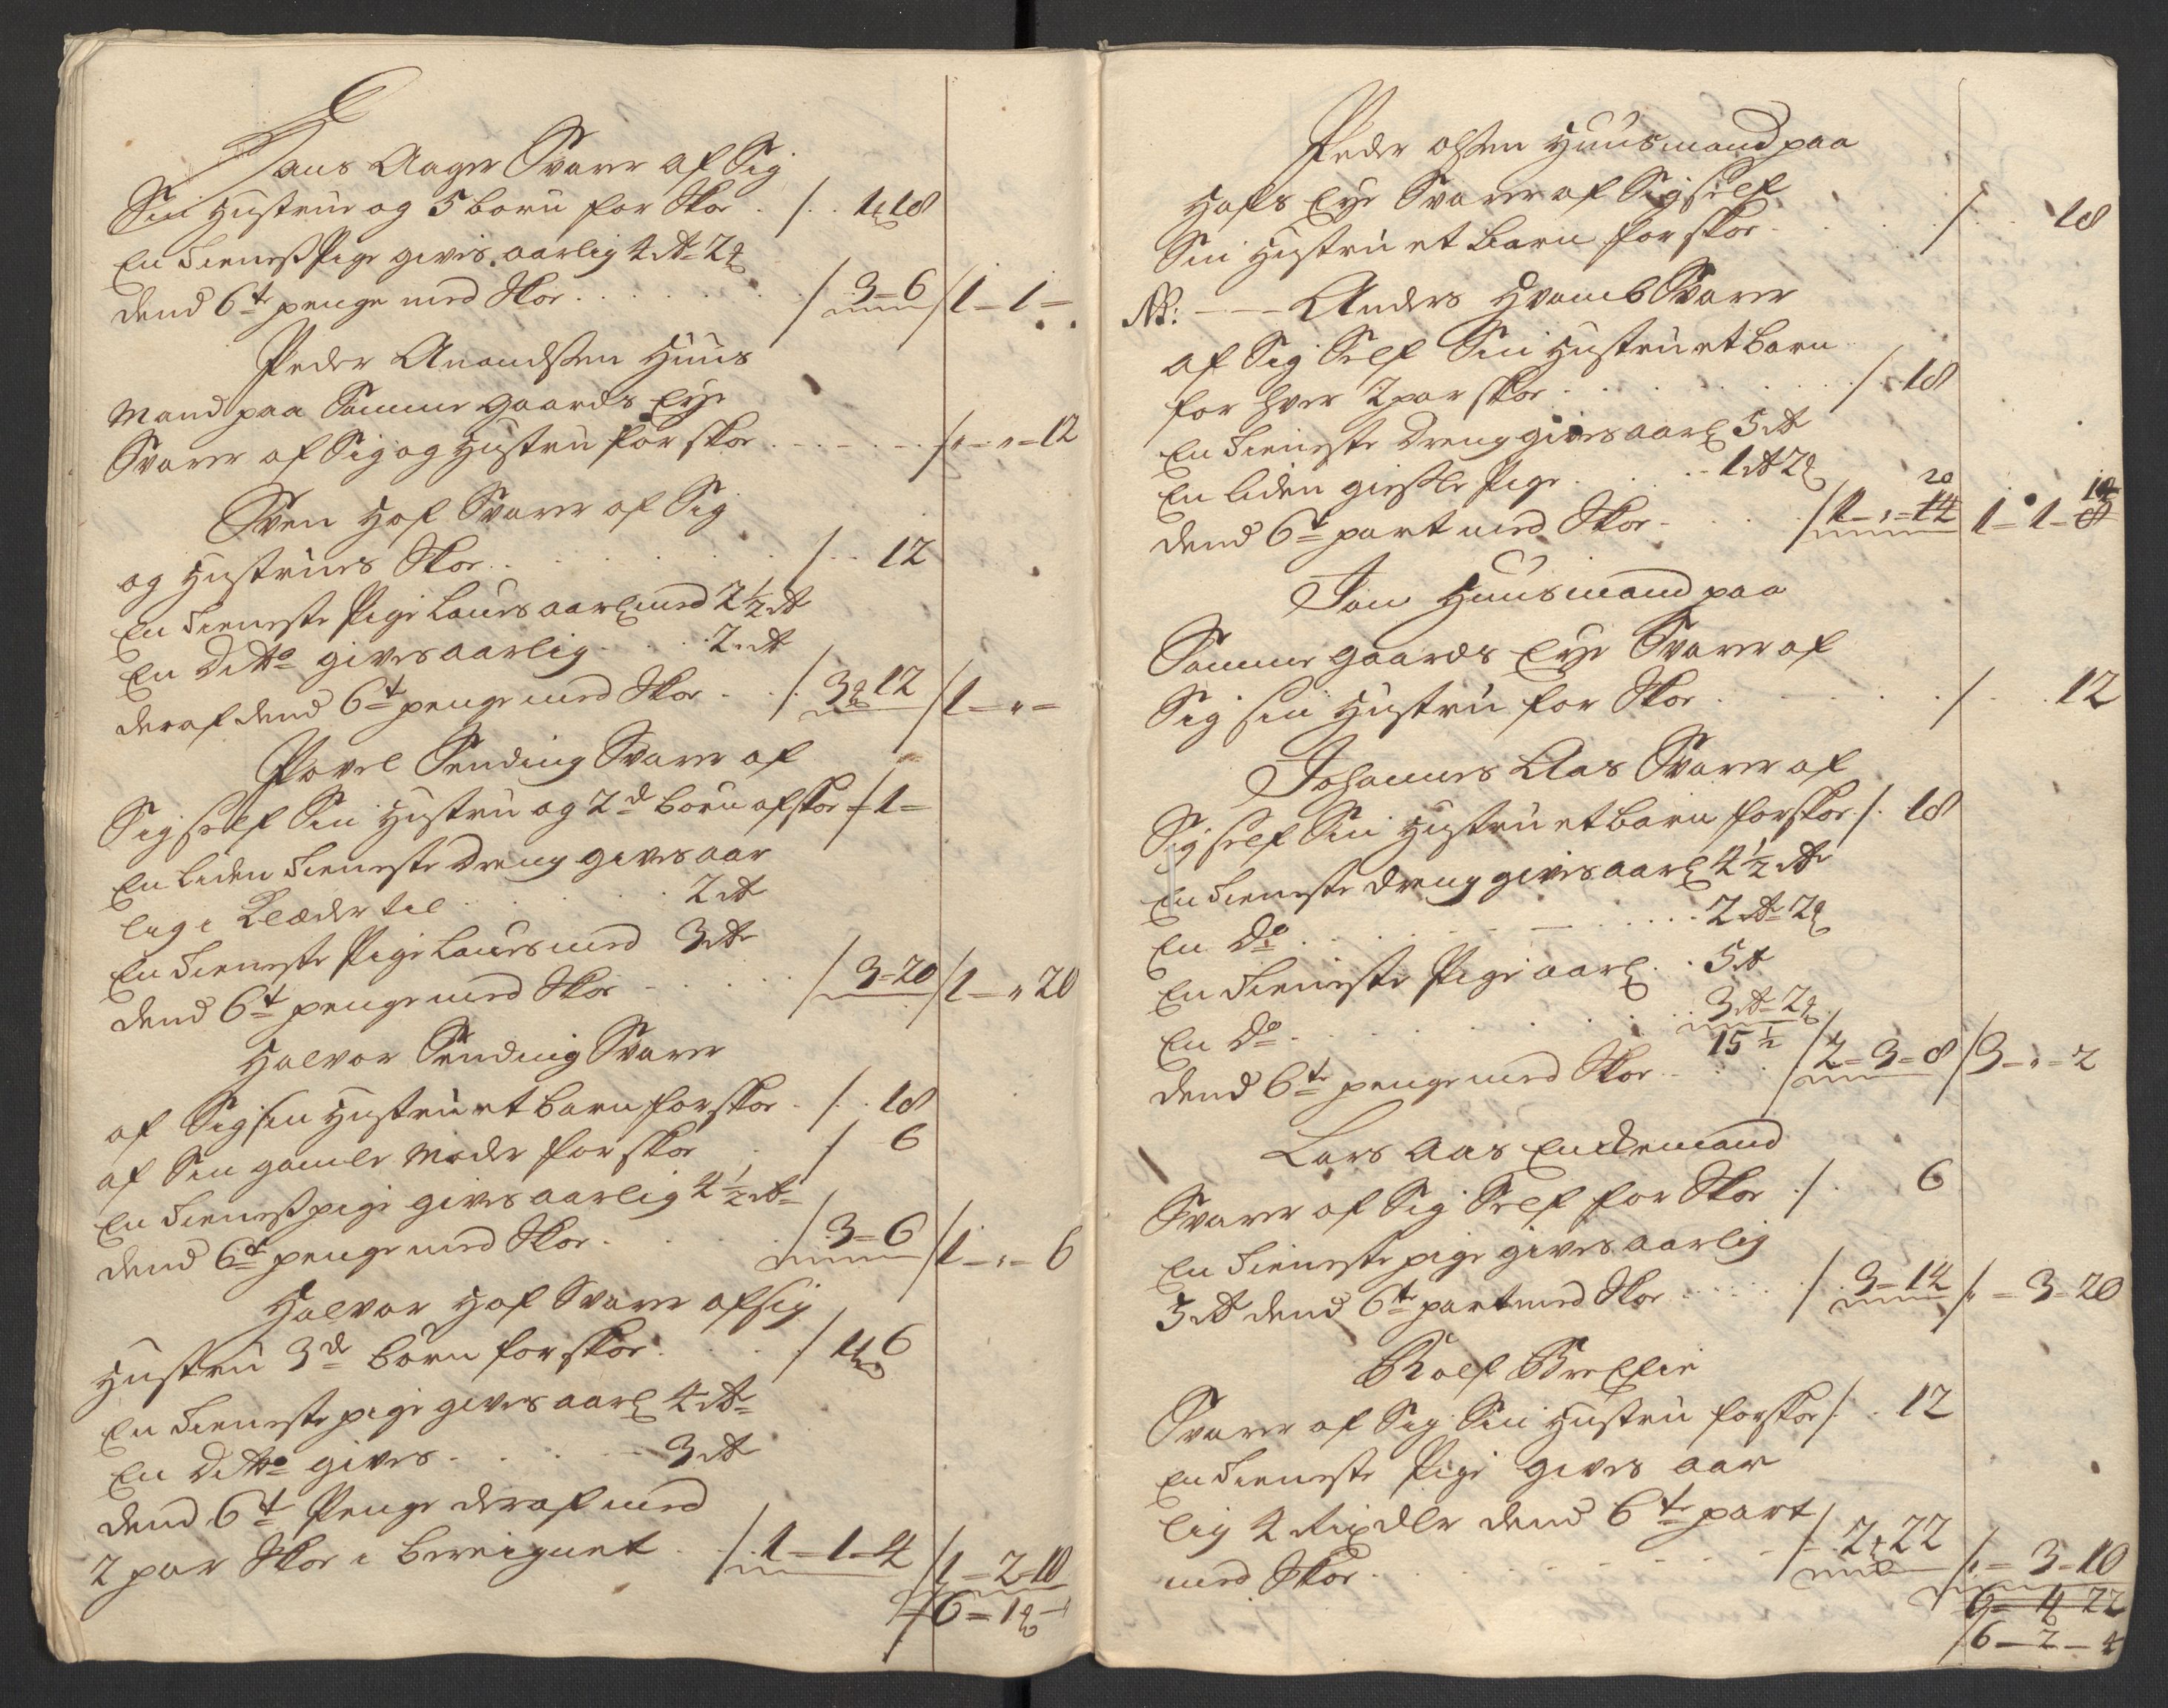 Hans Aager Svarer af Sig
Sin Hustrue og 5 börn for Skoe . /. . 1 ort 18
En tieneste Pige gives aarlig 4 rd 2 ort
dend 6te penge med Skoe . . . . . . / 3 = 6 / 1 – 1 –
Peder Amondssen Huus
Mand paa Samme gaards Eye
Svarer af Sig og Hustru for skoe . . . . . / " – " – 12
Sven Hof Svarer af Sig
og Hustrues Skoe . . . . . . / . . 12
En tieneste Pige Lönes aarl med 2 1/2 rd
En Ditto gives aarlig . . . 2 rd
deraf dend 6te penge med Skoe . . / 3 ort 12 / 1 – " –
Povel Sending Svarer af
Sig self Sin Hustru og 2de börn af skoe / 1 –
En liden tieneste dreng gives aar
lig i Klæder til . . . . 2 rd
En tieneste Pige Lönes med 3 rd
dend 6te penge med Skoe . . . . / 3 = 20 / 1 – " 20
Halvor Sending Svarer
af Sig sin Hustru et barn for skoe . / . . 18
af Sin gamle Moder for skoe . / 6
En tieneste pige gives aarlig 4 1/2 rd
dend 6te penge med Skoe . . . . / 3 = 6 / 1 – " – 6
Halvor Hof Svarer af sig
Hustru 3de börn for skoe . . . / 1 ort 6
En tieneste pige gives aarl 4 rd
En Ditto gives . . . . . 3 rd
dend 6te Penge deraf med
2 par Skoe i bereignet . . / 1 – 1 – 4 / 1 – 2 – 10
/ 6 = 1 ort –
Peder Olssen Huusmand paa
Hofs Eye Svarer af Sig self
Sin Hustru et barn for skoe . . . . . / . . 18
NB: – – – Anders Hvamb Svarer
af Sig Self Sin Hustru et barn
for hver 2 par skoe . . . . . . . / . 18
En tieneste dreng gives aarl 5 rd
En liden giesle Pige . . . . – 1 rd 2 ort
20 18
dend 6te part med Skoe . . . . / 1 – " – 14 1 – 1 – 8
Jon Huusmand paa
Samme gaards Eye Svarer af
Sig sin Hustru for Skoe . . . . . . / . . 12
Johannes Aas Svarer af
Sig self Sin Hustru et barn for skoe . / . 18
En tieneste dreng gives aarl 4 1/2 rd
En Do . . . . . . . . . 2 rd 2 ort
En tieneste Pige aarl . . 5 rd
En Do . . . . . . . . . 3 rd 2 ort
15 1/2
dend 6te penge med Skoe . . . . / 2 = 3 = 8 / 3 – " – 2
Lars Aas Enckemand
Svarer af Sig Self for Skoe . / . . 6
En tieneste pige gives aarlig
5 rd dend 6te part med Skoe . . . . . / 3 = 14 / " = 3 = 20
Rolf
Svarer af Sig Sin Hustru for skoe / . . 12
En tieneste Pige gives aar
lig 4 Rixdlr dend 6te part
med Skoe . . . . . . . . / – 2 ort 22 / " = 3 – 10
6 = 1 ort 22
/ 6 – 2 – 4